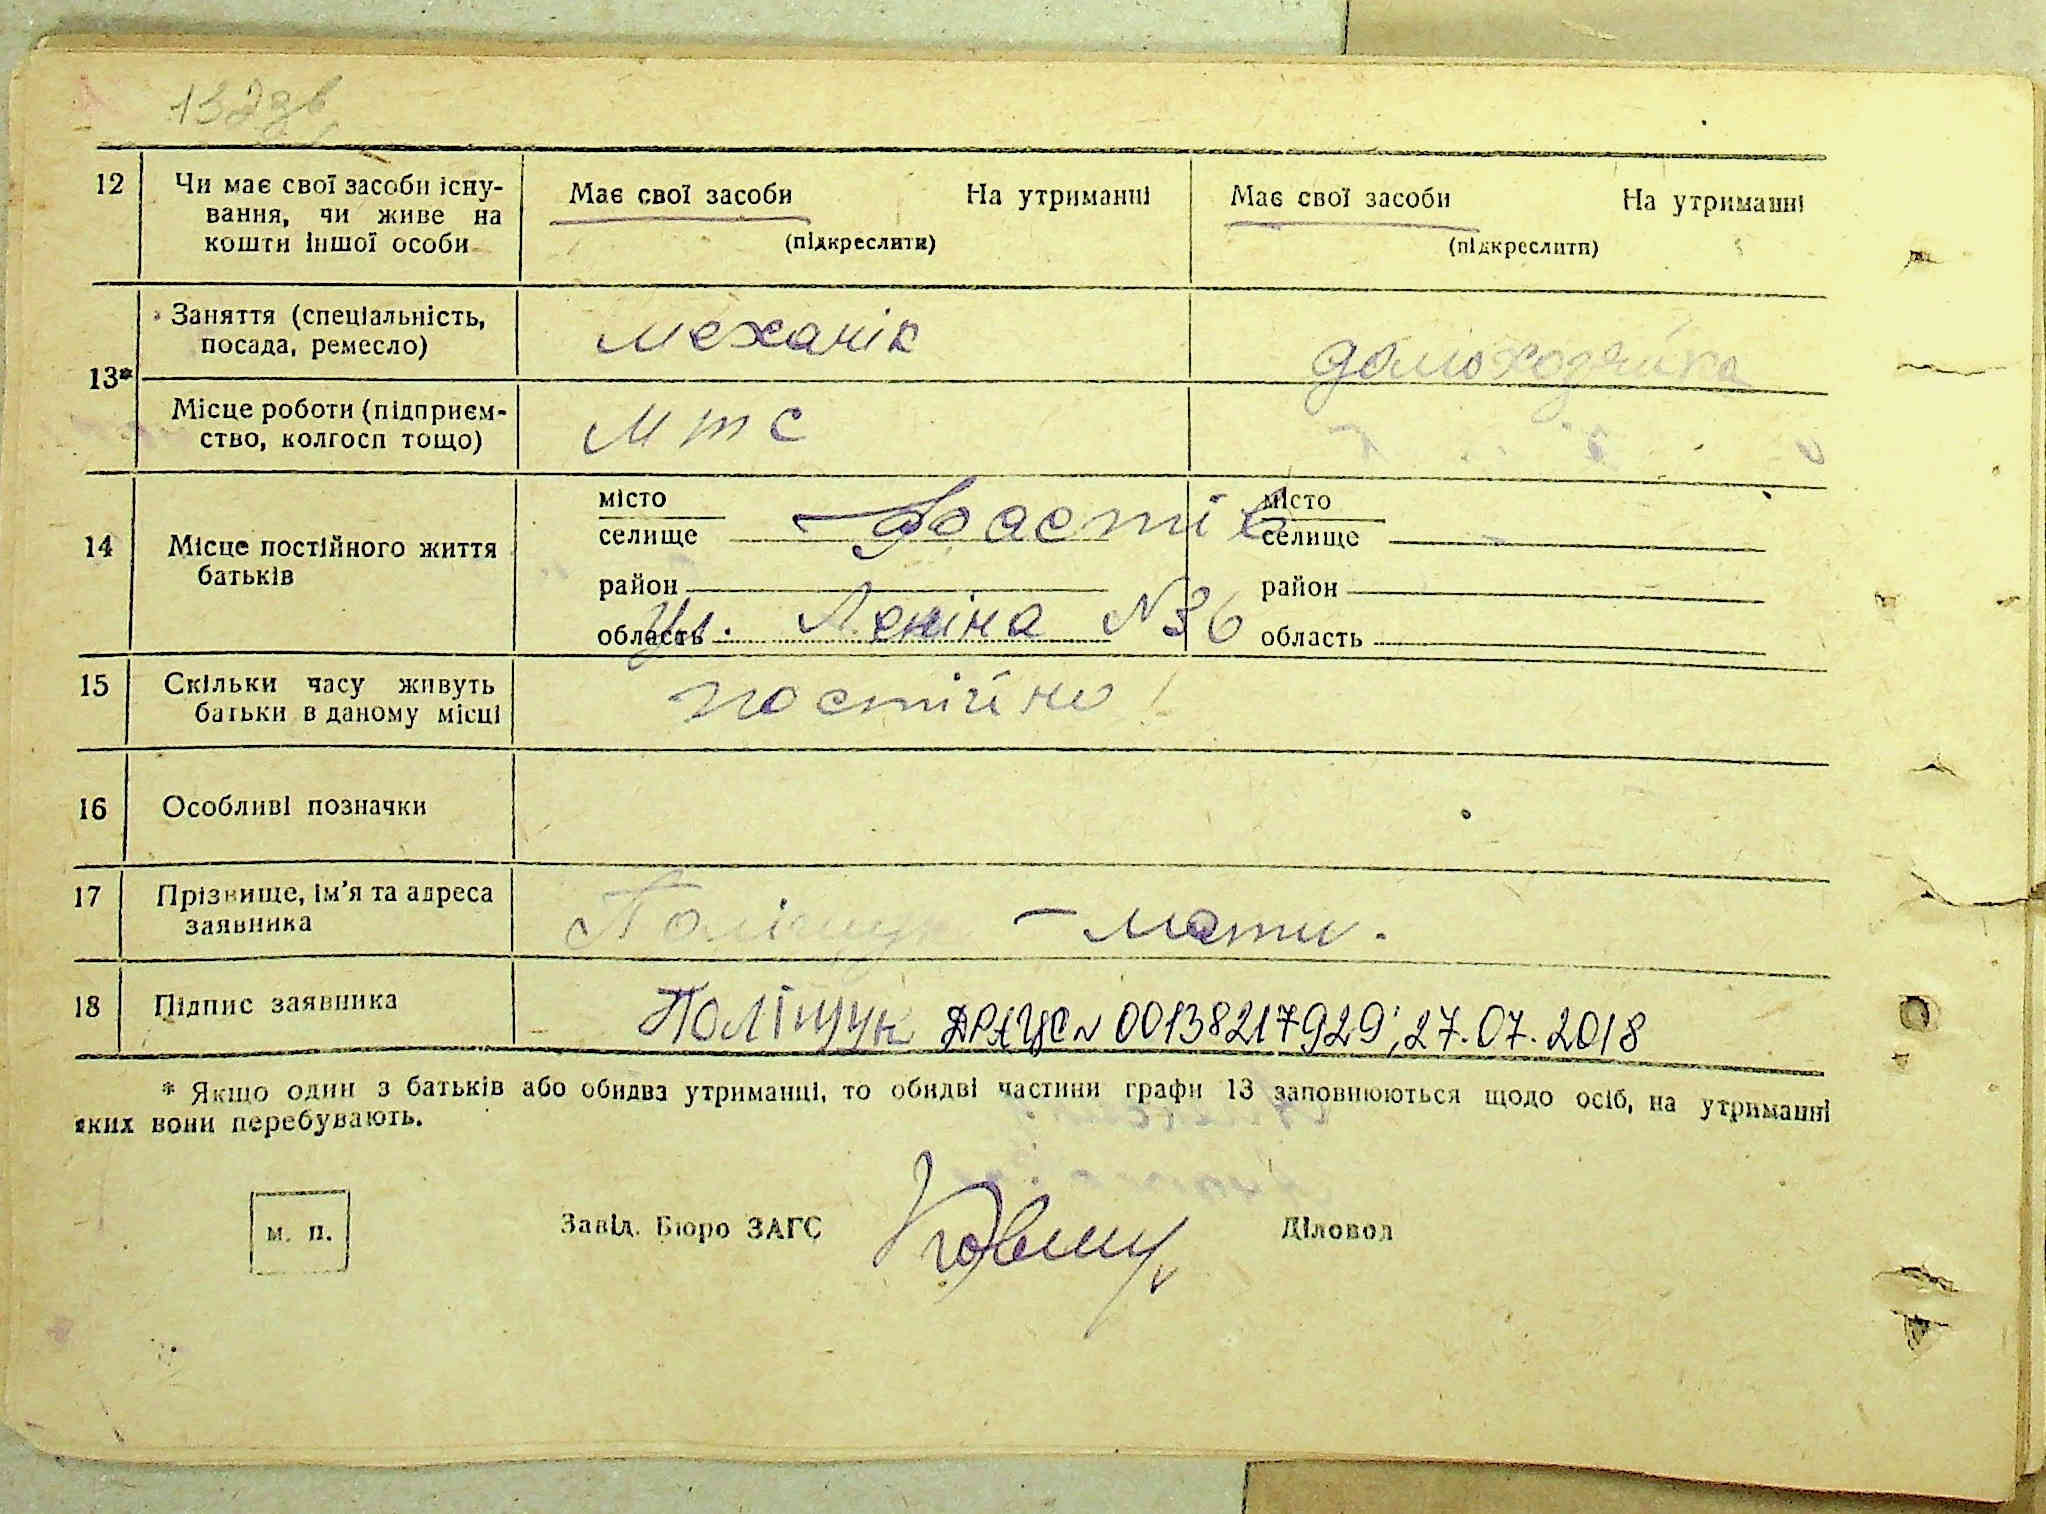 132зв
12 Чи має свої засоби існу-
вання, чи живе на
кошти іншої особи
Має свої засоби На утриманні
(підкреслити)
Має свої засоби На утриманні
(підкреслити)
13*
Заняття (спеціальність,
посада, ремесло)
механік
домохозяйка
Місце роботи (підприєм-
ство, колгосп тощо)
мтс
14 Місце постійного життя
батьків
місто
селище
Фастів
район
область
Ул. Леніна №36
місто
селище
район
область
15 Скільки часу живуть
батьки в даному місці
постійно
16 Особливі позначки
17 Прізвище, ім'я та адреса
заявника
Поліщук – мати.
18 Підпис заявника
Поліщук ДРАЦС № 00138217929; 27.07.2018
* Якщо один з батьків або обидва утриманці, то обидві частини графи 13 заповнюються щодо осіб, на утриманні
яких вони перебувають.
м. п.
Завід. Бюро ЗАГС
Діловод